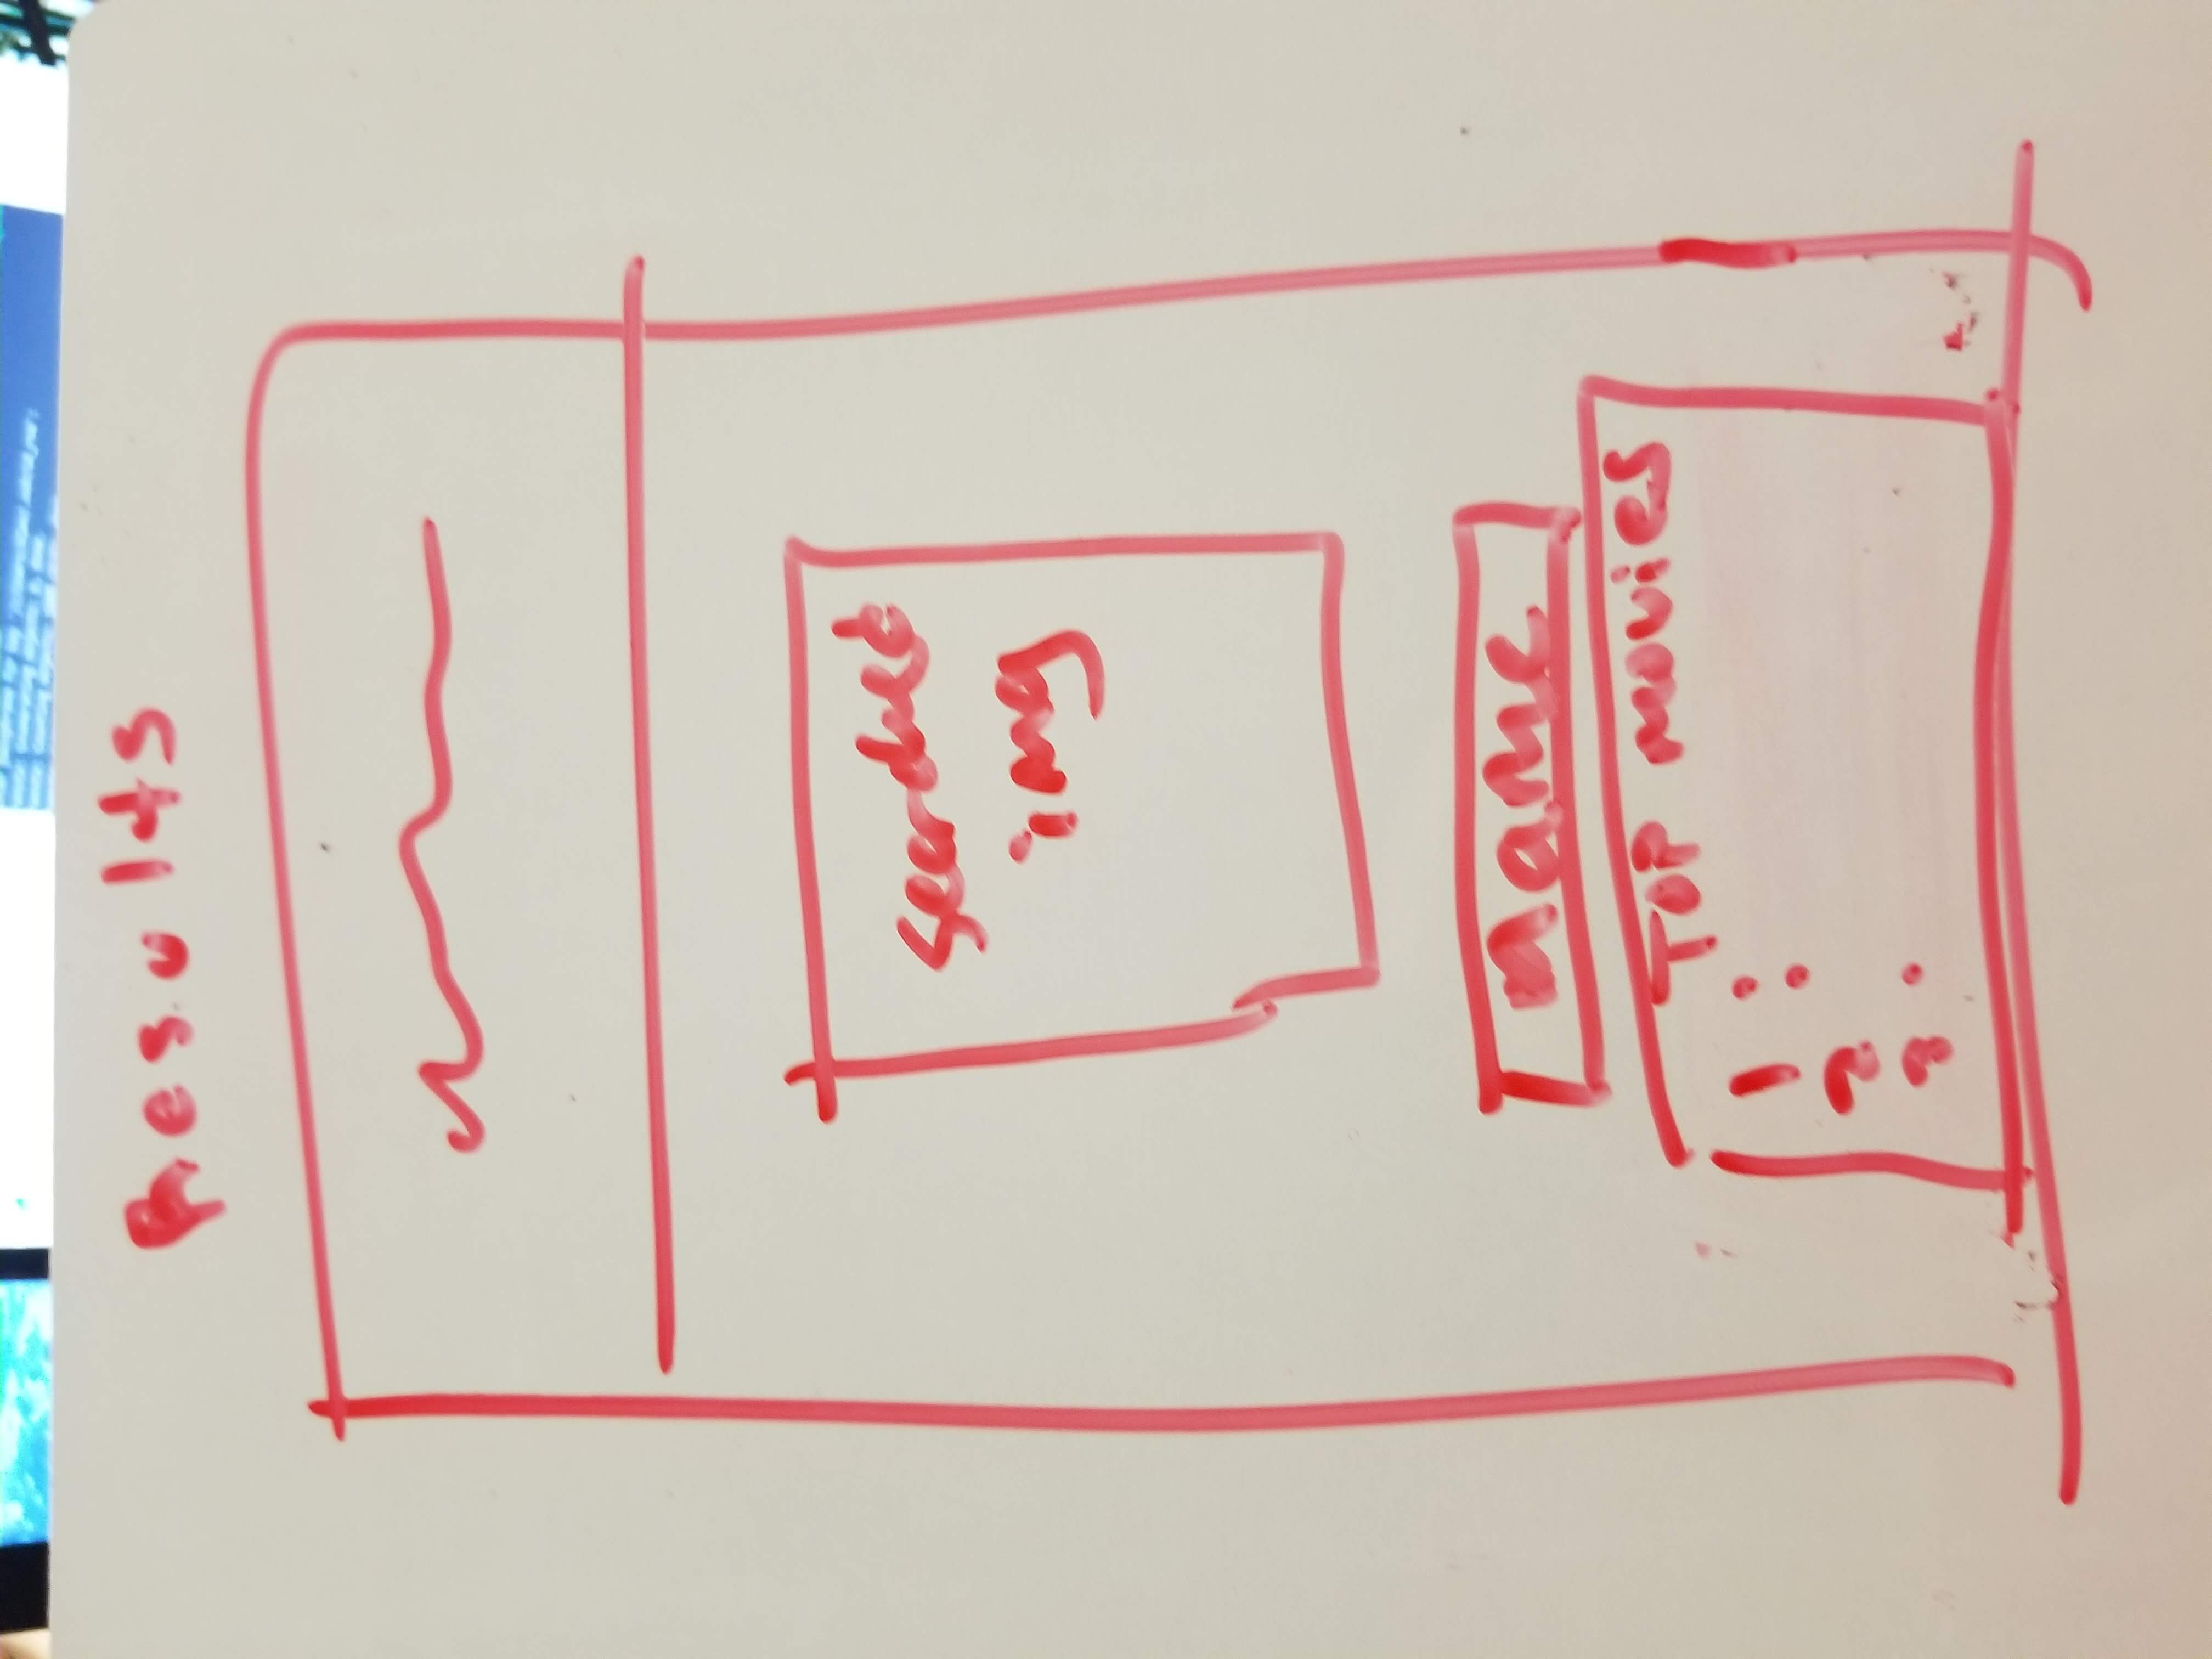 Results
searched
img
name
TOP MOVIES
1 :
2
3 .